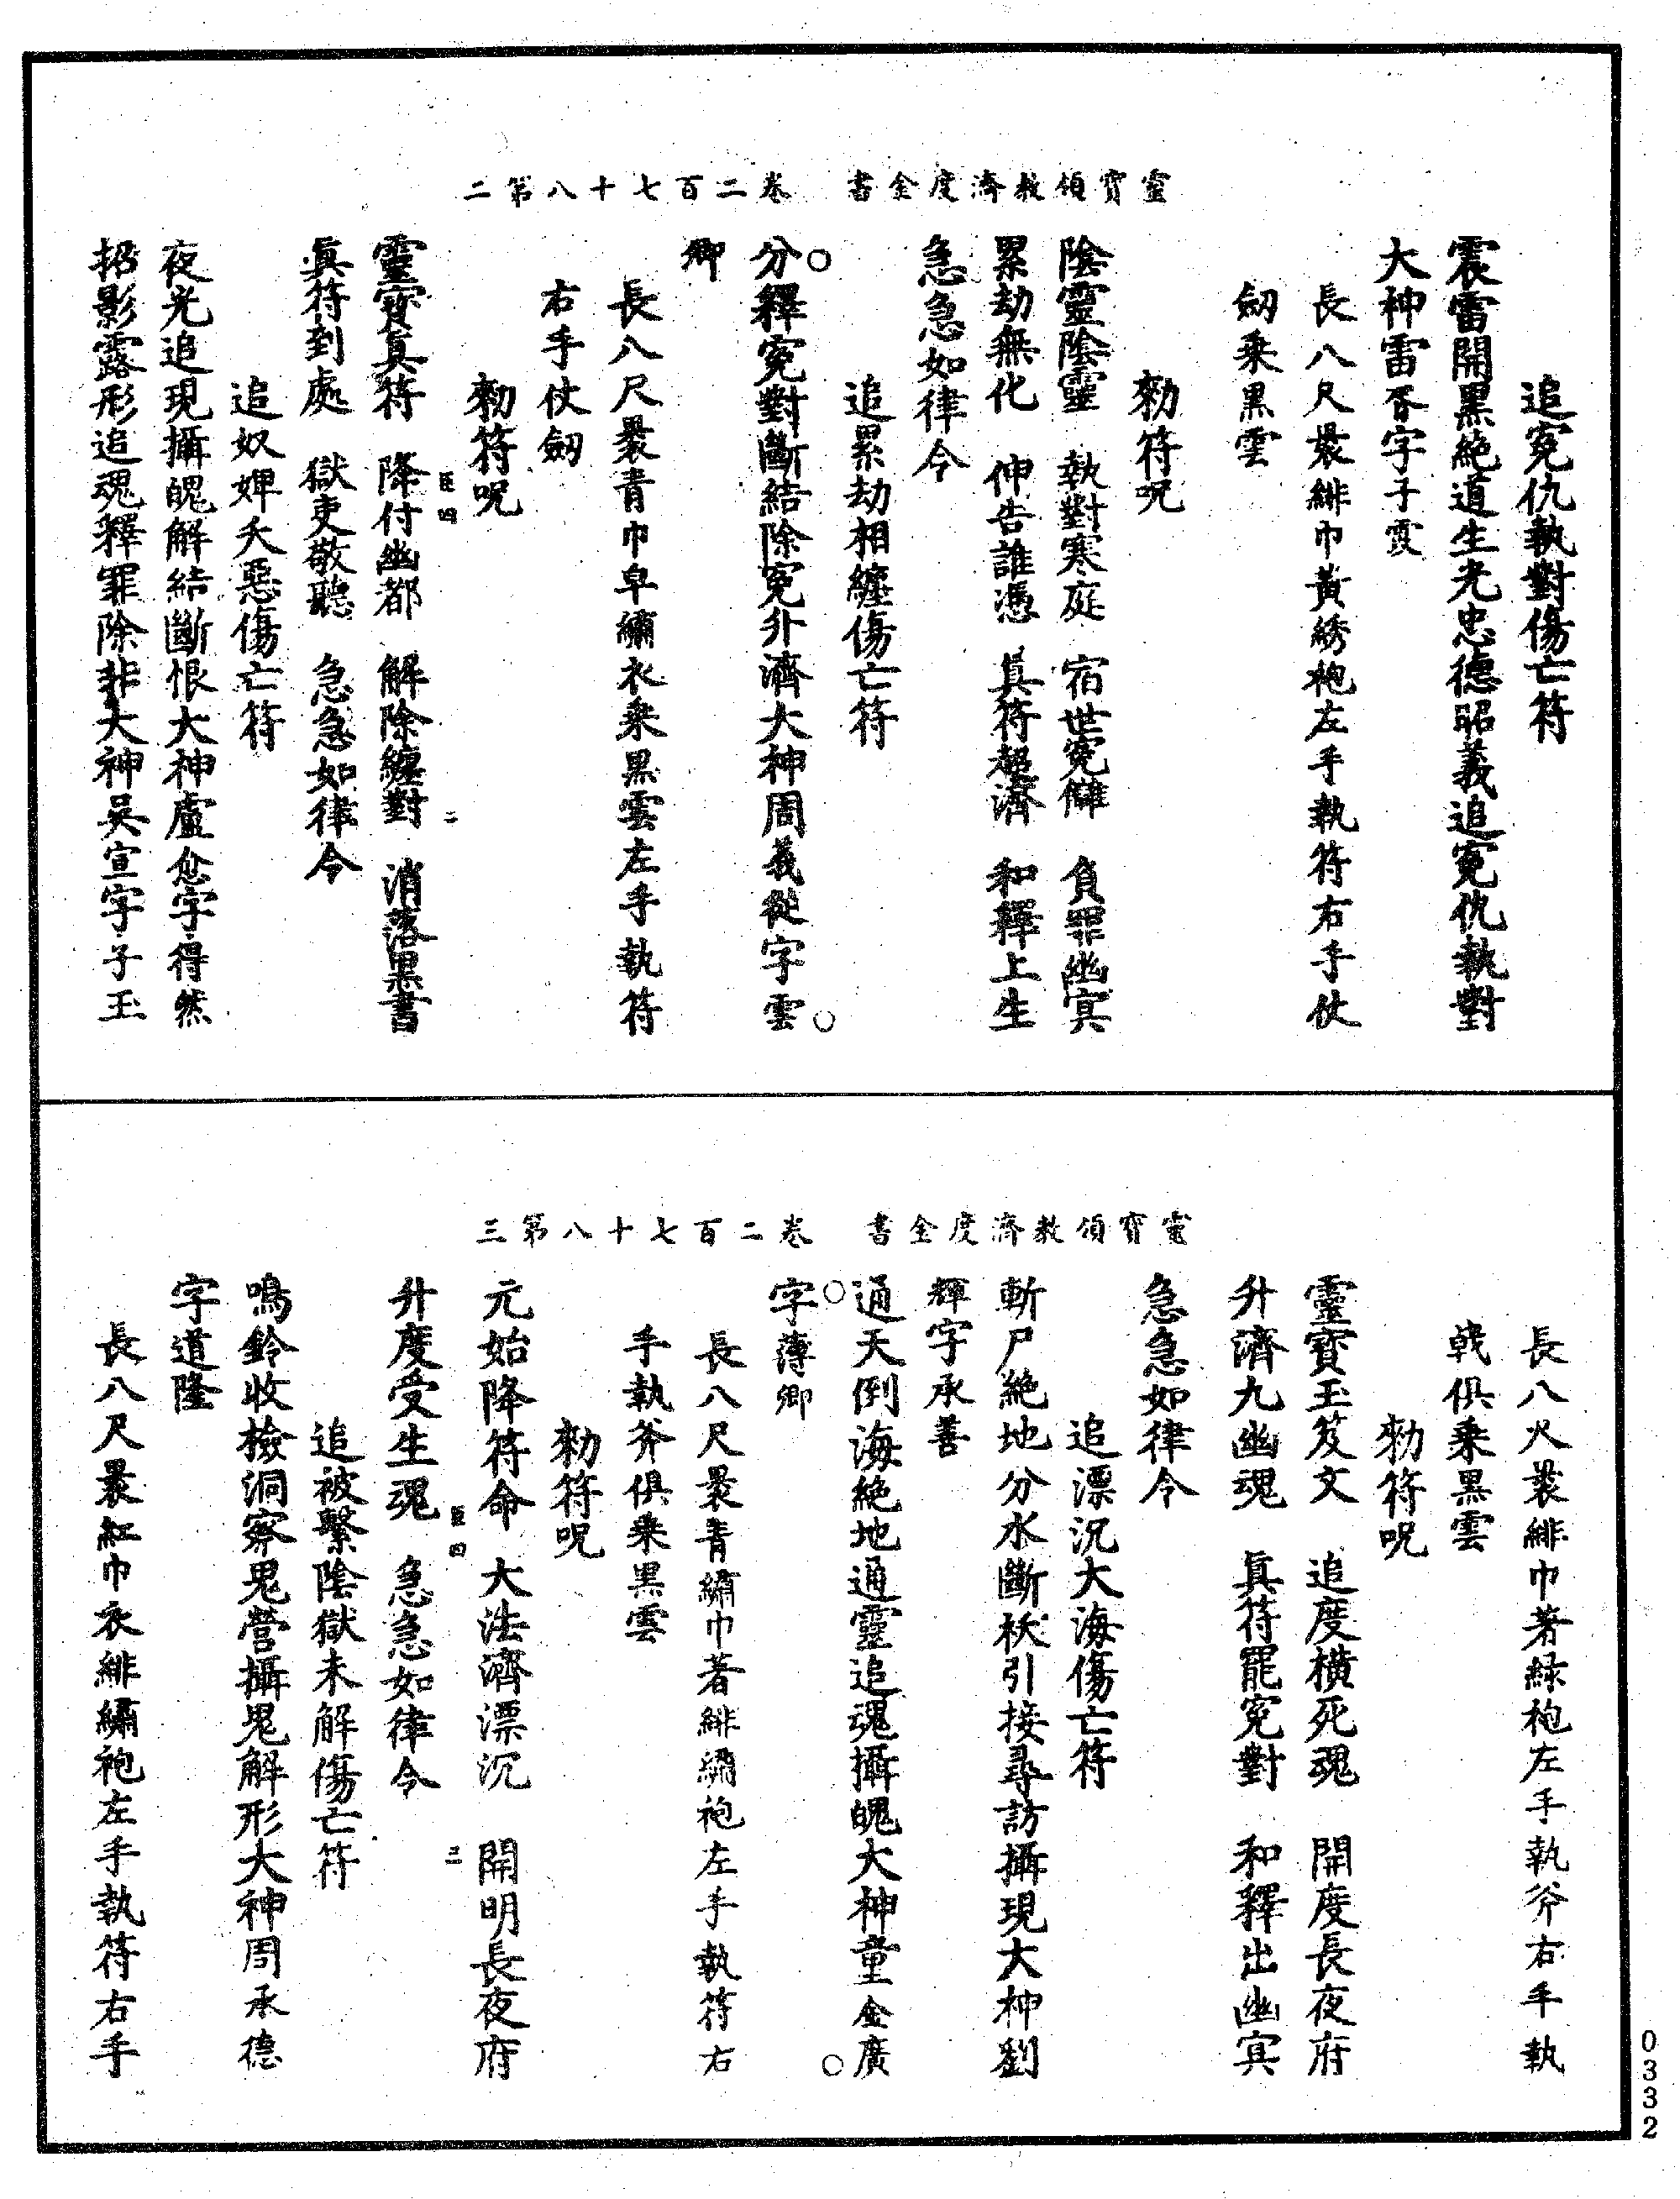 靈寶領教濟度金書　卷二百七十八第二
追寃仇執對傷亡符
震雷開黑絕道生光忠德昭義追寃仇執對
大神雷吞字子霞
長八尺裝緋巾黃綉袍左手執符右手仗
劒乗黑雲
勑符呪
陰靈陰靈　執對寒庭　宿世寃讎　負罪幽冥
累劫無化　仲告誰憑　真符超濟　和釋上生
急急如律令
追累劫相纏傷亡符
分釋寃對斷結除寃升濟大神周義從字雲
卿
長八尺裝青巾皁繡衣乗黑雲左手執符
右手仗劒
勑符呪
靈寶真符　降付幽都　解除纏對　消落黑書
臣四　二
眞符到處　獄吏敬聽　急急如律令
追奴婢夭惡傷亡符
夜光追現攝魄解結斷恨大神盧愈字得然
招影露形追魂釋罪除非大神吳宣字子玉
靈寶領教濟度金書　卷二百七十八第三
長八尺裝緋巾著緑袍左手執斧右手執
戟俱乗黑雲
勑符呪
靈寶玉笈文　追度橫死魂　開度長夜府
升濟九幽魂　眞符罷寃對　和釋出幽冥
急急如律令
追漂沉大海傷亡符
斬尸絕地分水斷袄引接尋訪攝現大神劉
輝字承善
通天倒海絕地通靈追魂攝魄大神童金廣
字薄卿
長八尺裝青繡巾著緋繡袍左手執符右
手執斧俱乗黑雲
勑符呪
元始降符命　大法濟漂沉　開明長夜府
臣四　三
升度受生魂　急急如律令
追被繫陰獄未解傷亡符
鳴鈴收檢洞察鬼營攝鬼解形大神周承德
字道隆
長八尺裝紅巾衣緋繡袍左手執符右手
0332